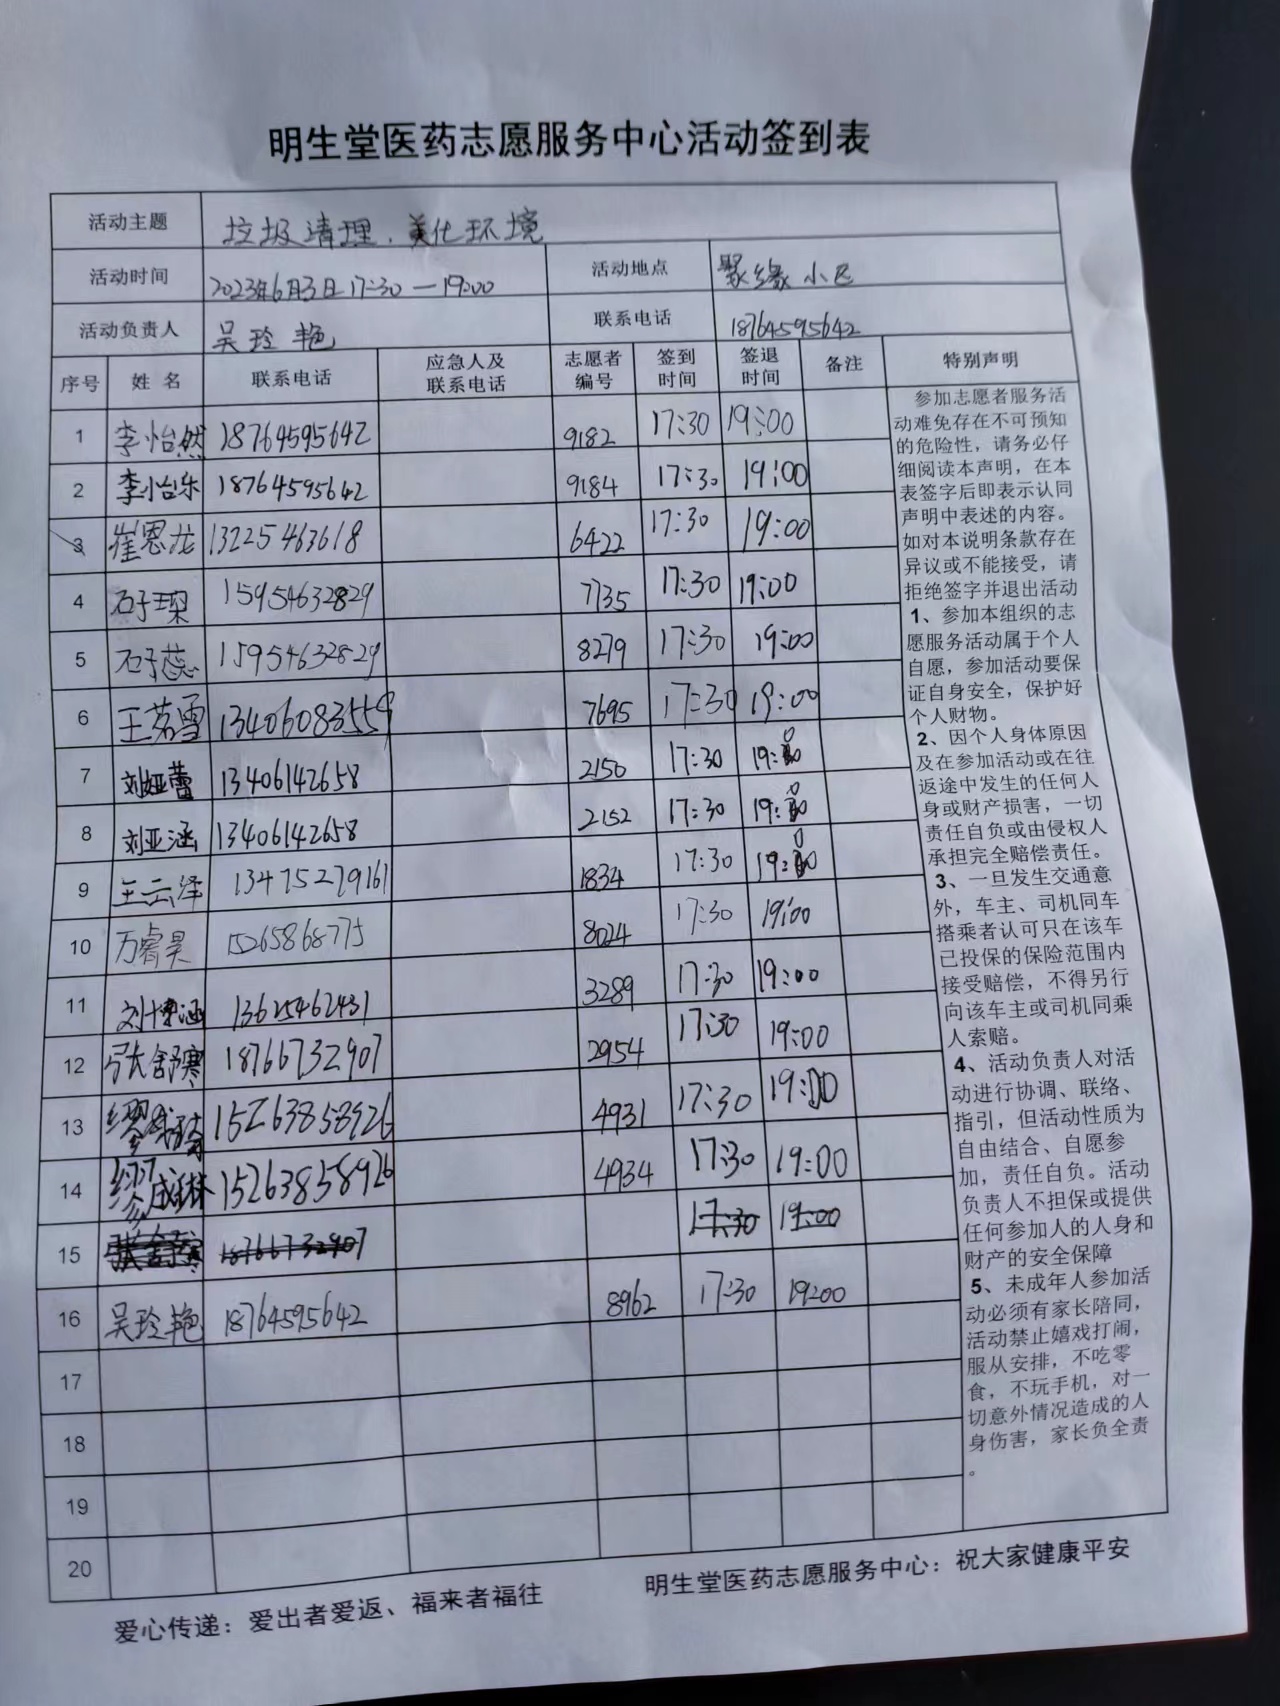 明生堂医药志愿服务中心活动签到表
活动主题 垃圾清理、美化环境
活动时间 2023年6月3日17:30—19:00 活动地点 聚缘小区
活动负责人 吴玲艳 联系电话 18764595642
序号 姓名 联系电话 应急人及联系电话 志愿者编号 签到时间 签退时间 备注 特别声明
1 李怡然 18764595642 9182 17:30 19:00
2 李怡乐 18764595642 9184 17:30 19:00
3 崔恩龙 13225463618 6422 17:30 19:00
4 石子琛 15954632829 7735 17:30 19:00
5 石子蕊 15954632829 8279 17:30 19:00
6 王若雪 13406083559 7695 17:30 19:00
7 刘娅蕾 13406142658 2150 17:30 19:00
8 刘亚涵 13406142658 2152 17:30 19:00
9 王云泽 13475279161 1834 17:30 19:00
10 万睿昊 15265868775 8024 17:30 19:00
11 刘博涵 13625462431 3289 17:30 19:00
12 张舒寒 18766732907 2954 17:30 19:00
13 缪 15263858926 4931 17:30 19:00
14 缪成林 15263858926 4934 17:30 19:00
15 张舒寒 18766732907 17:30 19:00
16 吴玲艳 18764595642 8962 17:30 19:00
17
18
19
20
参加志愿者服务活
动难免存在不可预知
的危险性，请务必仔
细阅读本声明，在本
表签字后即表示认同
声明中表述的内容。
如对本说明条款存在
异议或不能接受，请
拒绝签字并退出活动
1、参加本组织的志
愿服务活动属于个人
自愿，参加活动要保
证自身安全，保护好
个人财物。
2、因个人身体原因
及在参加活动或在往
返途中发生的任何人
身或财产损害，一切
责任自负或由侵权人
承担完全赔偿责任。
3、一旦发生交通意
外，车主、司机同车
搭乘者认可只在该车
已投保的保险范围内
接受赔偿，不得另行
向该车主或司机同乘
人索赔。
4、活动负责人对活
动进行协调、联络、
指引，但活动性质为
自由结合、自愿参
加，责任自负。活动
负责人不担保或提供
任何参加人的人身和
财产的安全保障
5、未成年人参加活
动必须有家长陪同，
活动禁止嬉戏打闹，
服从安排，不吃零
食，不玩手机，对一
切意外情况造成的人
身伤害，家长负全责
。
爱心传递：爱出者爱返、福来者福往 明生堂医药志愿服务中心：祝大家健康平安